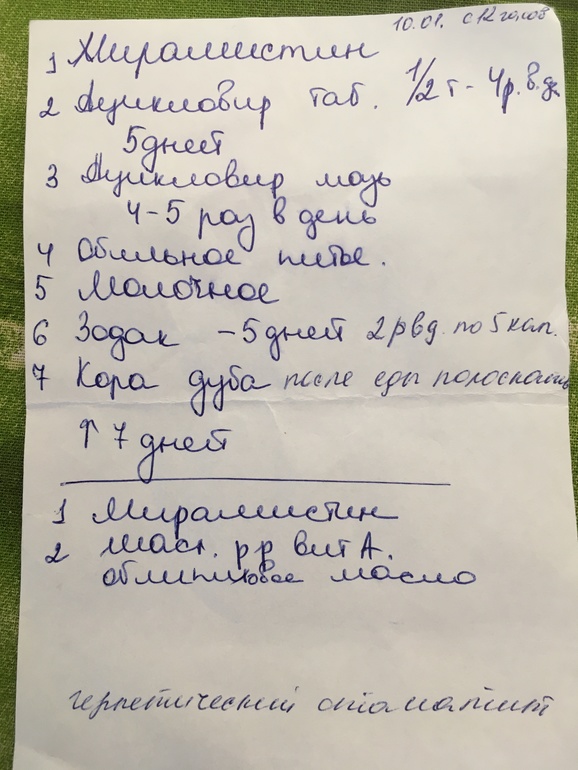 10.01. с 12 часов
1 Мирамистин
2 Ацикловир таб. 1/2 т - 4р. в. д.
5 дней
3 Ацикловир мазь
4-5 раз в день
4 Обильное питье.
5 Молочное
6 Зодак - 5 дней 2 р в д. по 5 кап.
7 Кора дуба после еды полоскать
↑ 7 дней
1 Мирамистин
2 Масл. р р вит А.
облипиховое масло
герпетический стоматит